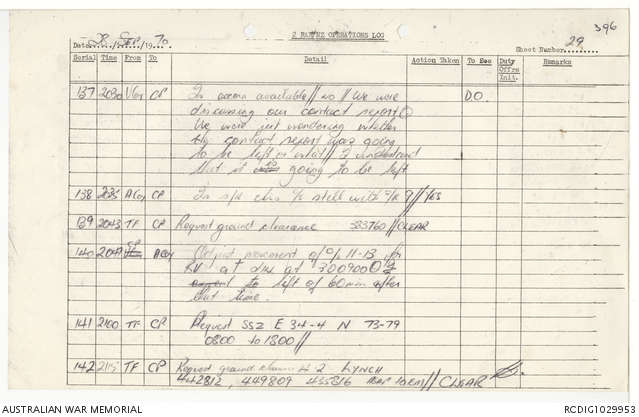 396
2 RAR/NZ OPERATIONS LOG
Date 28 / SEP / 19 70
Sheet Number 29
Serial Time From To Detail Action Taken To See Duty Offrs Init. Remarks
137 2030 V Coy CP In ocean available// no // We were D.O.
discussing our contact report
We were just wondering whether
the contact report was going
to be left or what// I understand
that it is going to be left
138 2035 A Coy CP still with // YES
139 2043 TF CP Request ground clearance 383760 // CLEAR
140 2049 CP A Coy movement of C/S 11-13 for
RV at at 300900
to left of 60 min after
that time.
141 2100 TF CP Request SSZ E 34-4 N 73-79
0800 to 1800//
142 2115 TF CP Request ground 4 2 LYNCH
442812, 449809 435816 // CLEAR
AUSTRALIAN WAR MEMORIAL
RCDIG1029953